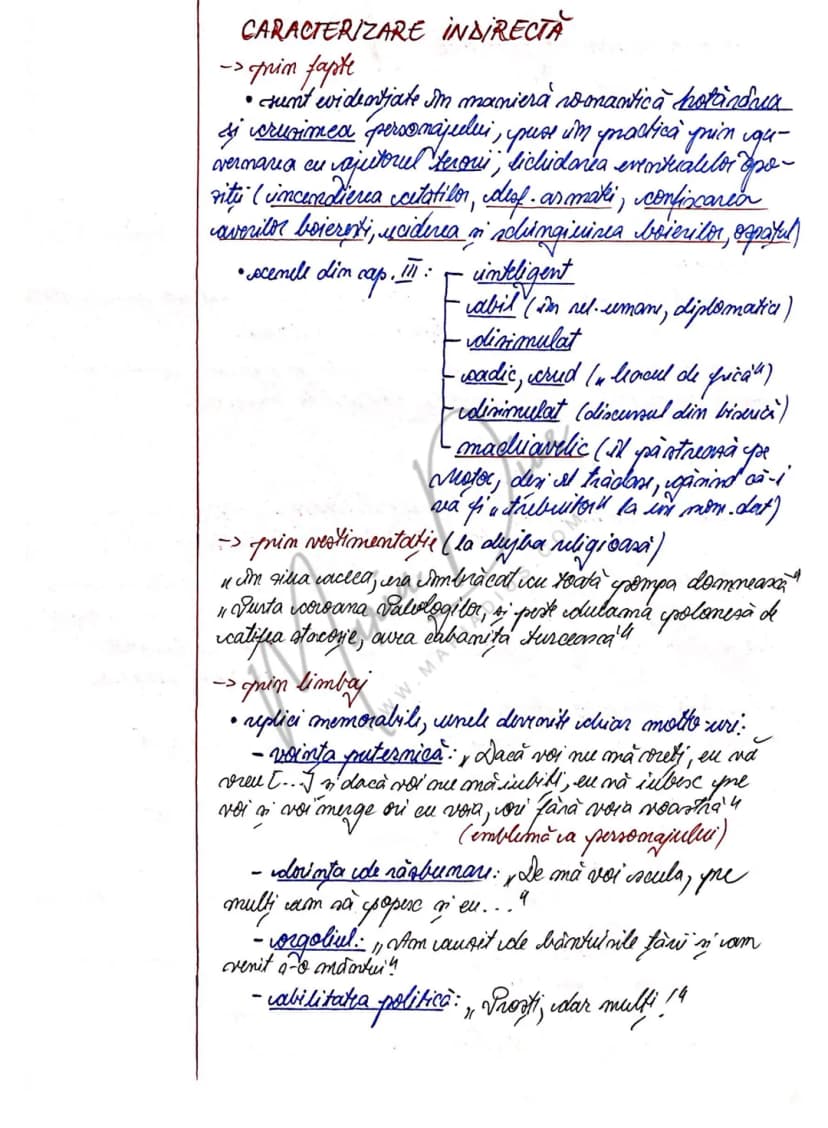 CARACTERIZARE INDIRECTĂ
-> prin fapte
• sunt evidențiate în manieră romantică hotărârea
și cruzimea personajului, puse în practică prin gu-
vernarea cu ajutorul terorii, lichidarea eventualelor opo-
ziții (incendierea cetăților, desf. armatei, confiscarea
averilor boierești, uciderea și schingiuirea boierilor, ospățul)
• scenele din cap. III:
- inteligent
- abil (în rel. umane, diplomatice)
- disimulat
- sadic, crud („leacul de frică”)
- disimulat (discursul din biserică)
- machiavelic (îl păstrează pe
Moțoc, deși îl trădase, găsind că-i
va fi „trebuitor” la un mom. dat)
-> prin vestimentație (la slujba religioasă)
„În ziua aceea, era îmbrăcat cu toată pompa domnească”
„Purta coroana Paleologilor, și peste dulama poloneză de
catifea stacojie, avea cabaniță turcească”
-> prin limbaj
• replici memorabile, unele devenite chiar motto-uri:
- voința puternică: „Dacă voi nu mă vreți, eu vă
vreu [...] și dacă voi nu mă iubiți, eu vă iubesc pre
voi și voi merge ori cu voia, ori fără voia voastră”
(emblemă a personajului)
- dorința de răzbunare: „De mă voi scula, pre
mulți am să popesc și eu...”
- orgoliul: „Am auzit de bântuirile țării și am
venit s-o mântui”
- abilitatea politică: „Proști, dar mulți!”
Maria Dice
WWW.MARIADICE.COM